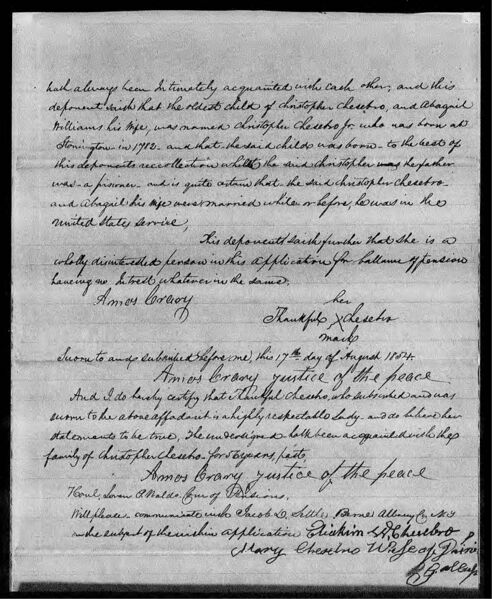 hath always been Intimately acquainted with each other, and this
deponent saith that the oldest child of Christopher Chesebro, and Abagail
Williams his Wife, was named Christopher Chesebro Jr. who was born at
Stonington in 1782. and that the said child was born to the best of
this deponents recollection whilst the said Christopher was the father
was a prisoner and is quite certain that the said Christopher Chesebro
and Abagail his Wife were married while or before, he was in the
United States service,
This deponent saith further that she is a
wholly disinterested person in this application for ballance of pension
haveing no Intrest whatever in the same.
Amos Crary
her
Thankful X Chesebro
mark
Sworn to and subscribed before me, this 17th day of August 1854
Amos Crary justice of the peace
And I do hereby certify that Thankful Chesebro, who subscribed and was
sworn to the above affidavit is a highly respectable Lady and do believe her
statements to be true, The undersigned hath been acquainted with the
family of Christopher Chesebro for years, past
Amos Crary justice of the peace
Loren P Waldo. Com of Pensions.
Will please communicate with Jacob L. Settle Berne Albany Co. N.Y
on the subject of the within application Eliakim Chesebro
Mary Chesebro Wife of
Gallup